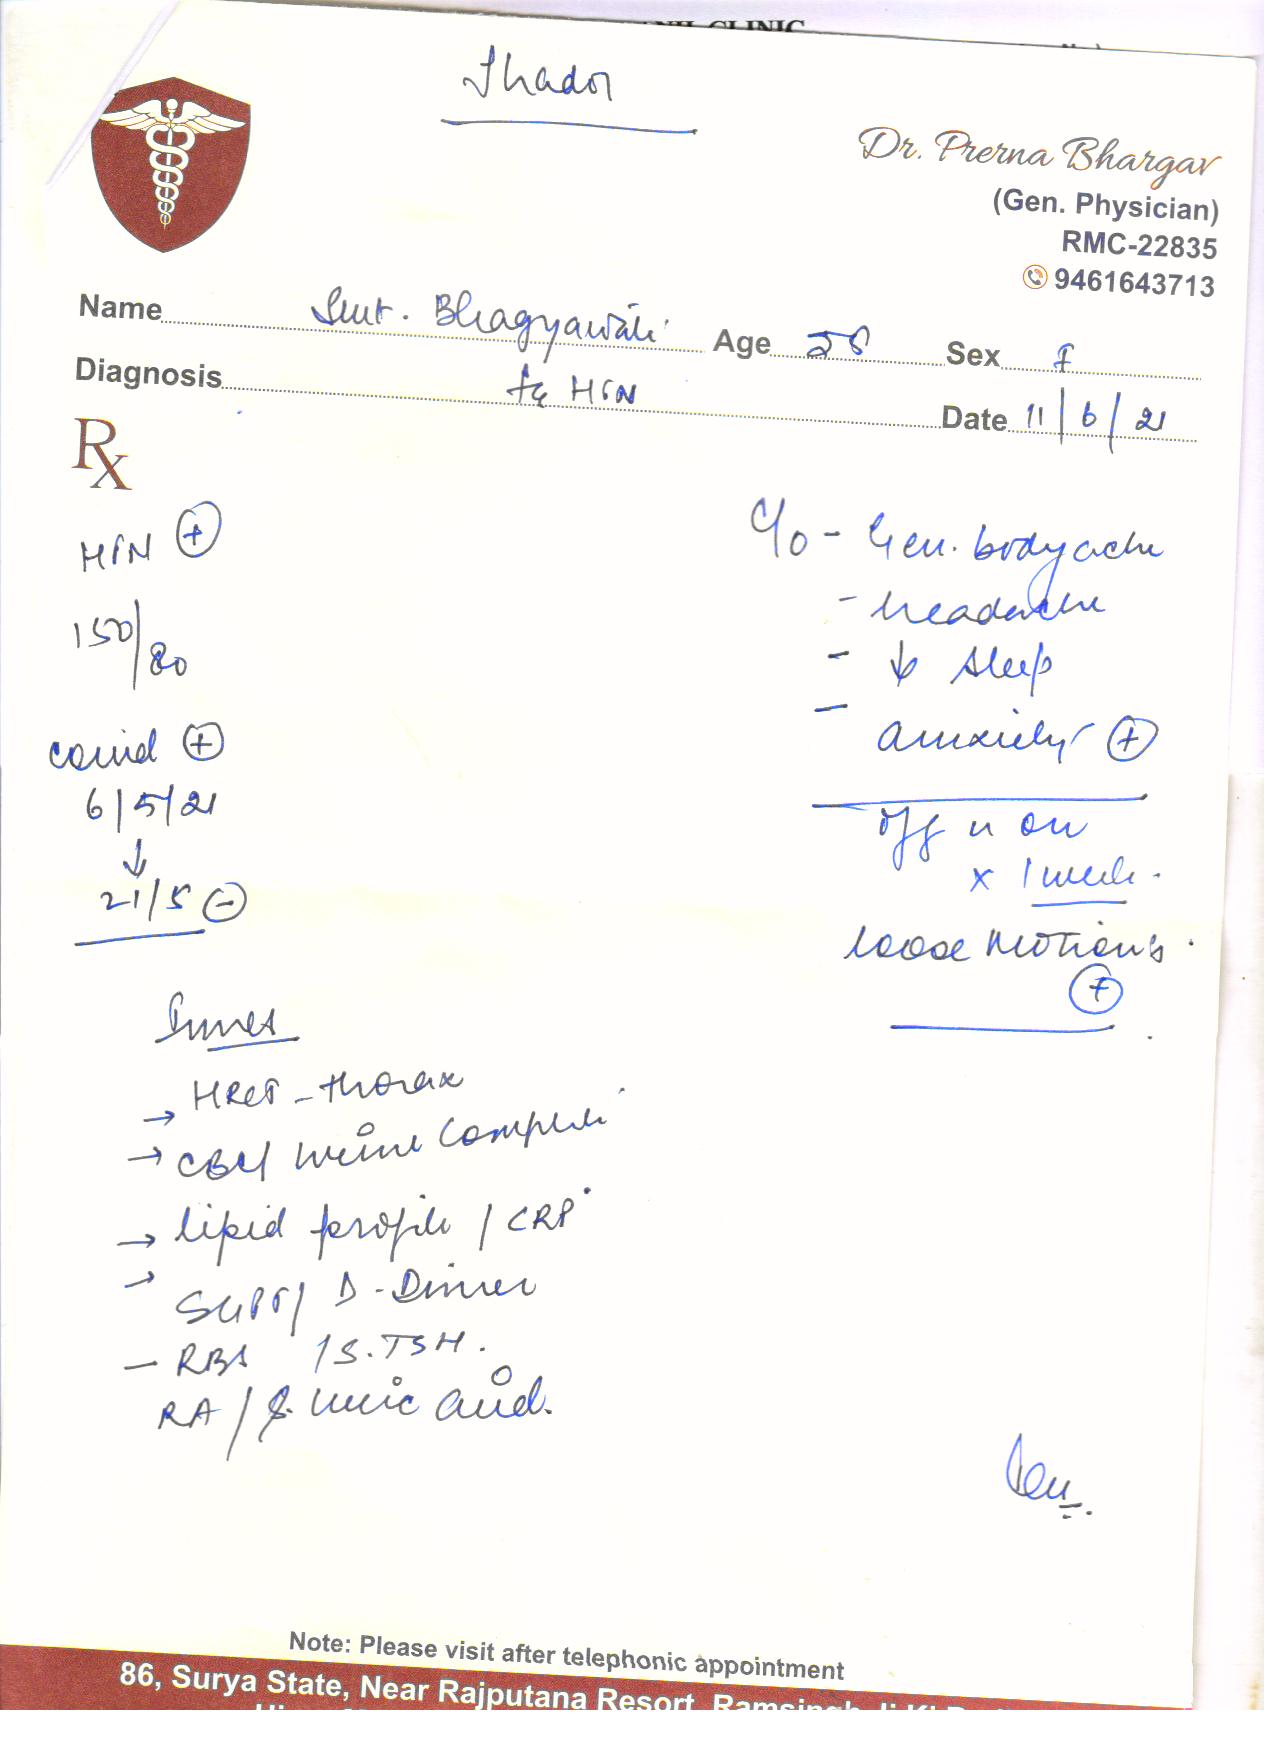 CLINIC
Dr. Prerna Bhargav
(Gen. Physician)
RMC-22835
9461643713
Name Smt. Bhagyawati Age Sex F
Diagnosis HTN
Date 11/6/21
Rx
HTN +
150/80
covid +
6/5/21
↓
21/5 -
C/o - Gen. bodyache
- headache
- ↓ sleep
- anxiety +
off n on
x 1 week.
loose motions.
+
→ HRCT - thorax
→ CBC/ Urine Complete
→ lipid profile / CRP
→ SGPT/ D-Dimer
- RBS /S.TSH.
RA / S. Uric acid.
Note: Please visit after telephonic appointment
86, Surya State, Near Rajputana Resort, Ramsingh Ji Ki